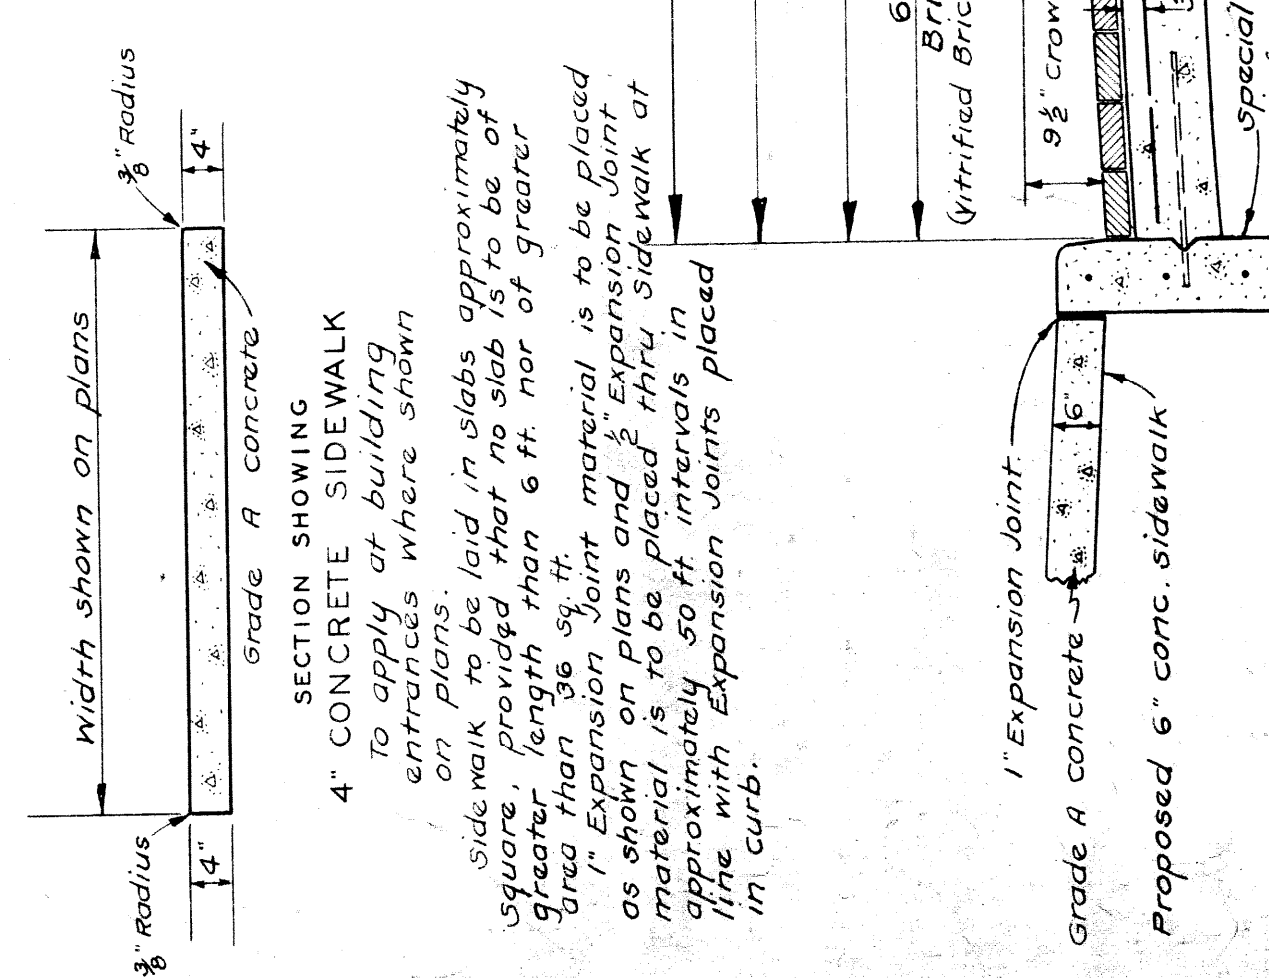 Width shown on plans
3/8" Radius
3/8" Radius
4"
4"
Grade A concrete
SECTION SHOWING
4" CONCRETE SIDEWALK
To apply at building
entrances where shown
on plans.
Sidewalk to be laid in slabs approximately
square, provided that no slab is to be of
greater length than 6 ft. nor of greater
area than 36 sq. ft.
1" Expansion Joint material is to be placed
as shown on plans and 1/2" Expansion Joint
material is to be placed thru sidewalk at
approximately 50 ft intervals in
line with Expansion Joints placed
in curb.
6
Bri
(Vitrified Bric
9 1/2" crow
1" Expansion Joint
6"
Grade A concrete
Proposed 6" conc. sidewalk
special